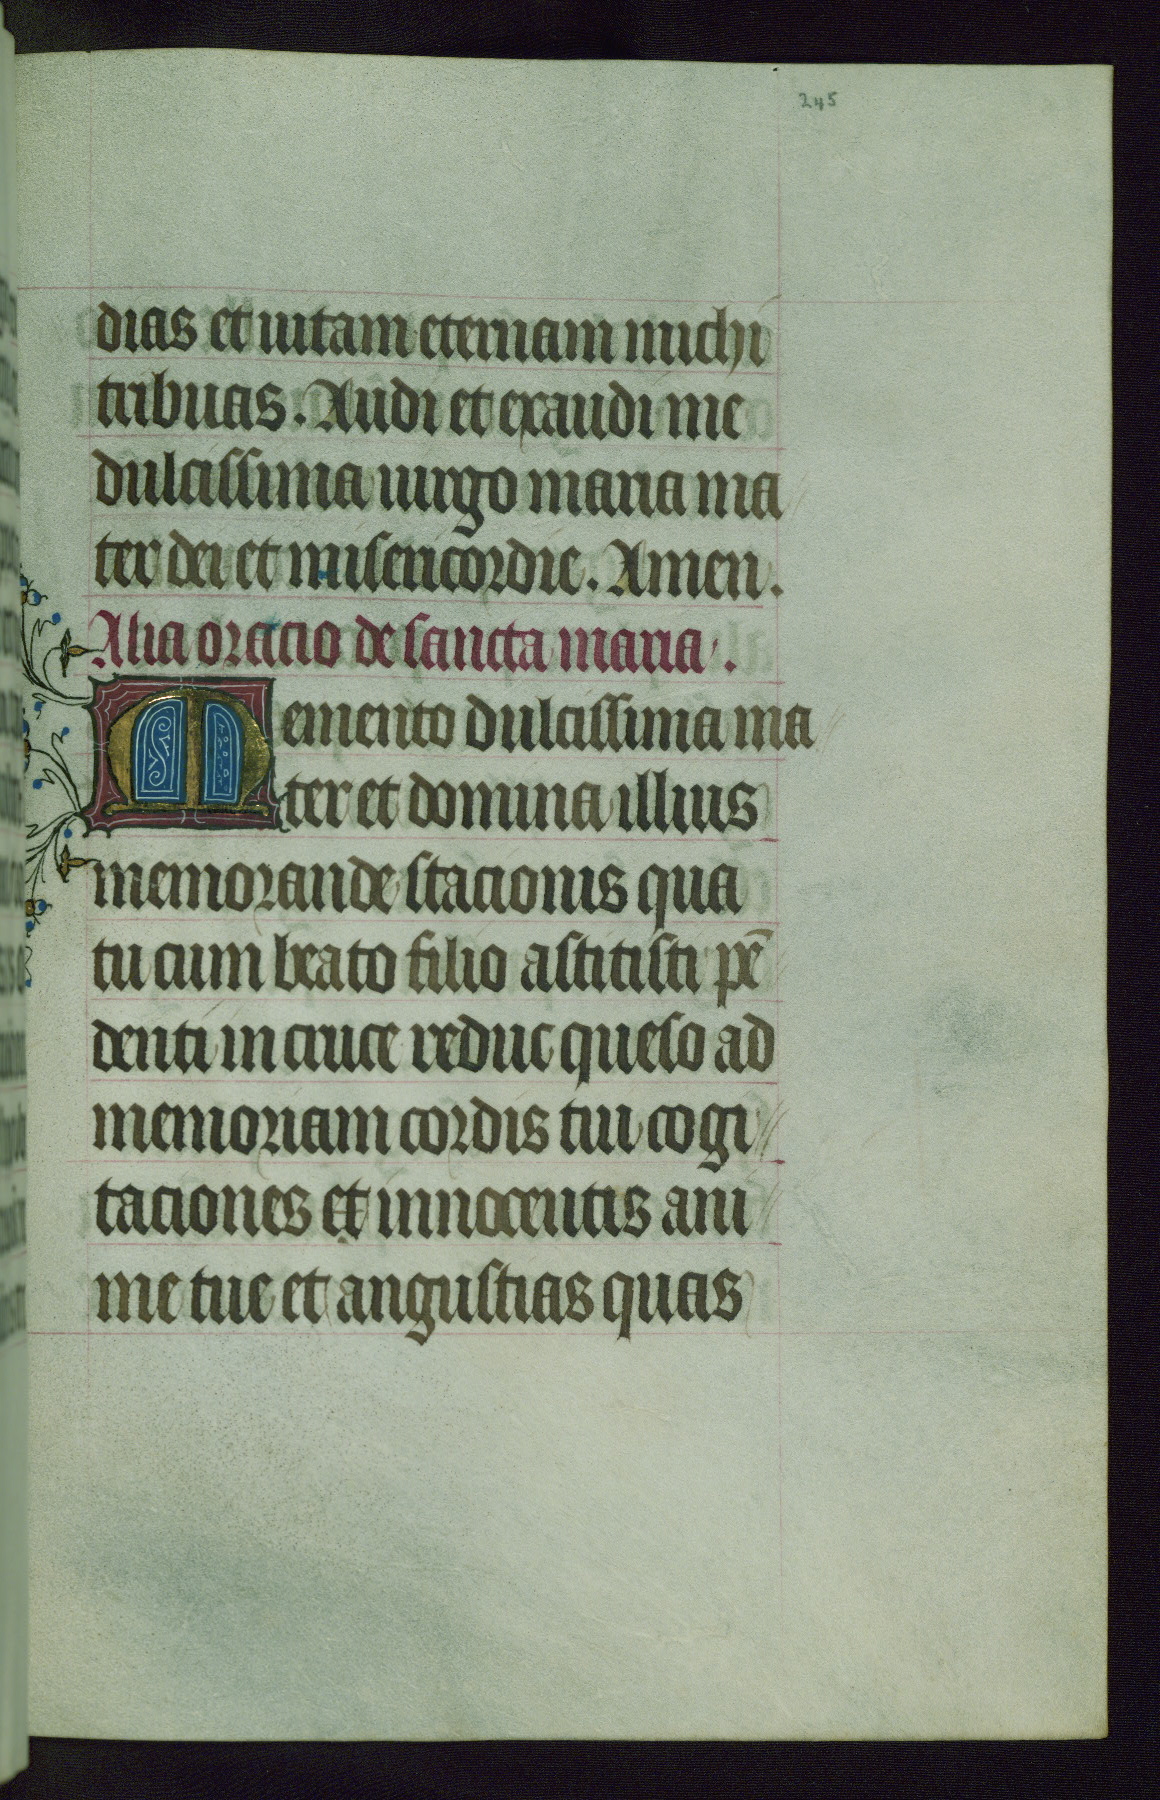 245
dias et uitam eternam michi
tribuas. Audi et exaudi me
dulcissima uirgo maria ma
ter dei et misericordie. Amen.
Alia oracio de sancta maria.
Memento dulcissima ma
ter et domina illius
memorande stacionis qua
tu cum beato filio astitisti pē
denti in cruce reduc queso ad
memoriam cordis tui cogi
taciones et innocentis ani
me tue et angustias quas